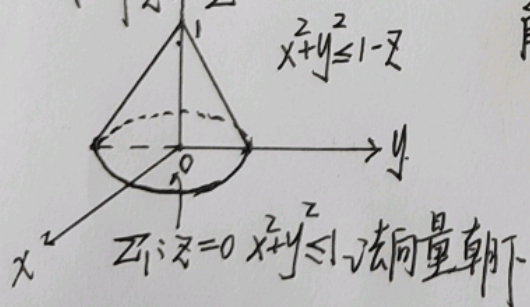 1
x²+y²≤1-z
y
0
x
Σ₁: z=0 x²+y²≤1 法向量朝下